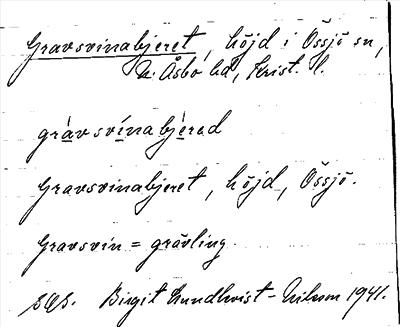 Gravsvinabjeret, höjd i Össjö sn,
N. Åsbo hd, Krist. l.
grávsvínabjérəd
Gravsvinabjeret, höjd, Össjö.
Gravsvin = grävling.
Birgit Lundkvist - 1941.